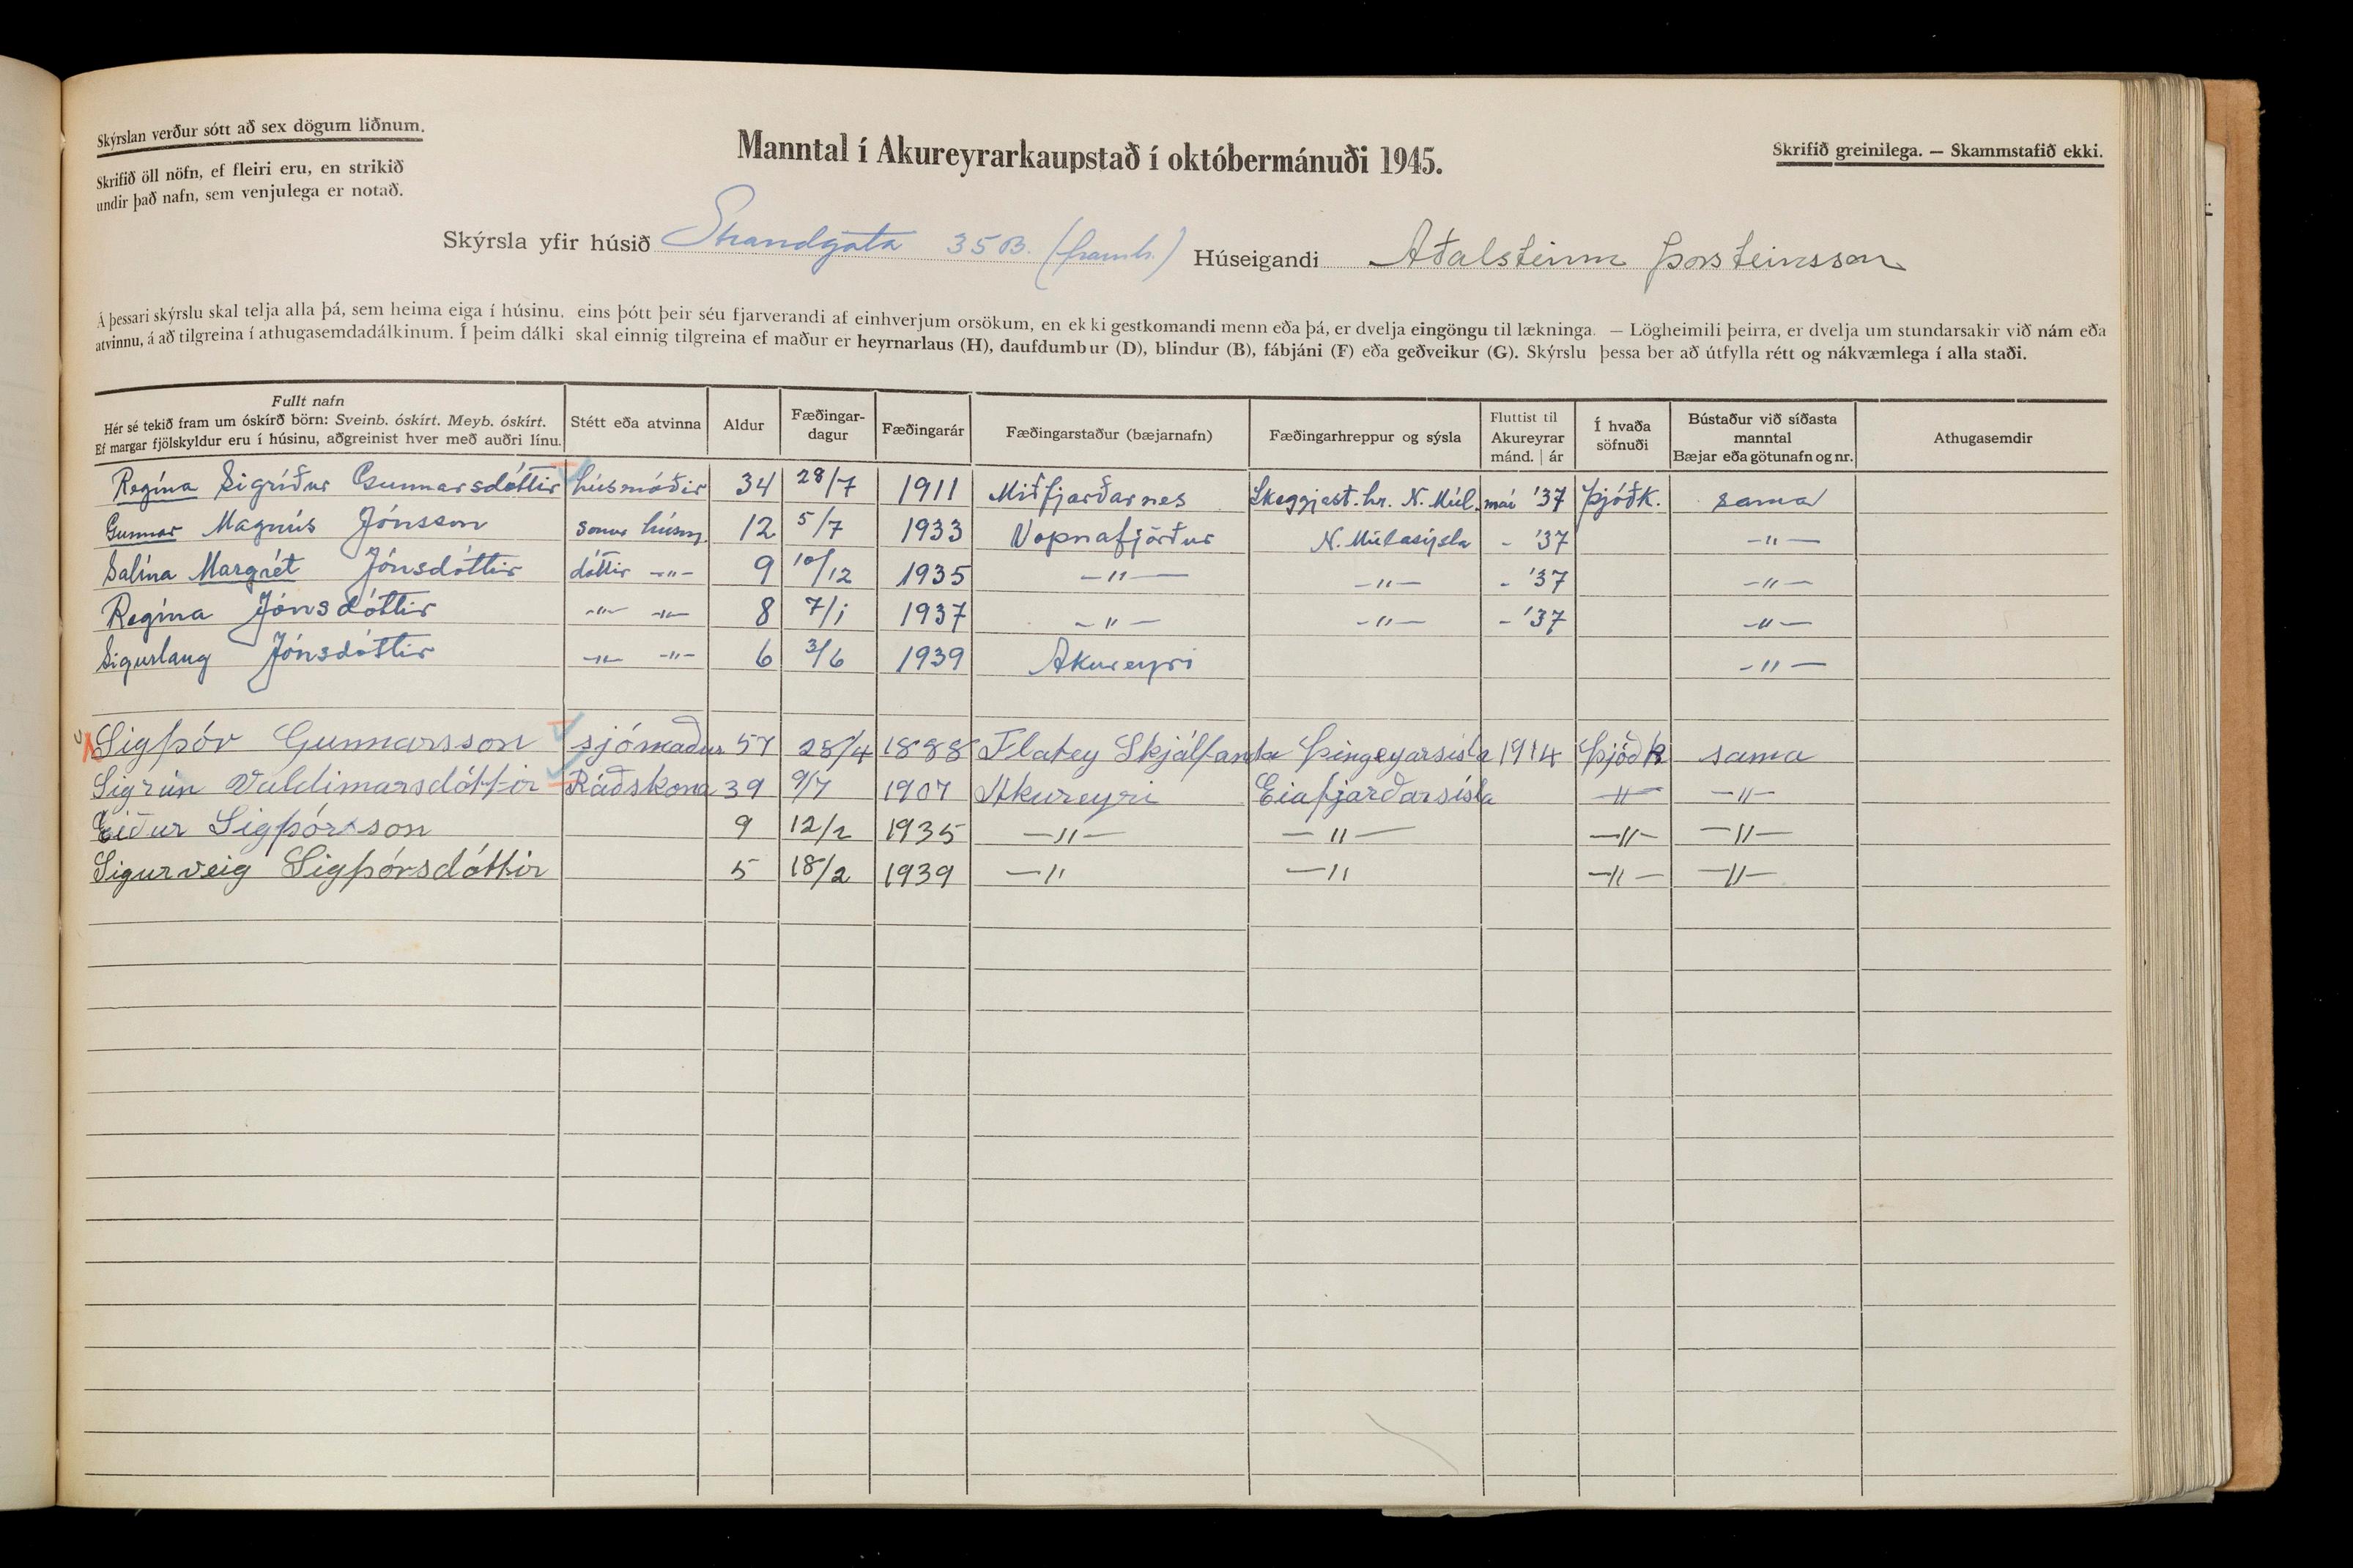 Skýrslan verður sótt að sex dögum liðnum.
Skrifið öll nöfn, ef fleiri eru, en strikið
undir það nafn, sem venjulega er notað.
Manntal í Akureyrarkaupstað í októbermánuði 1945.
Skrifið greinilega. — Skammstafið ekki.
Skýrsla yfir húsið Strandgata 35B. (framh.) Húseigandi Aðalsteinn Þorsteinsson
Á þessari skýrslu skal telja alla þá, sem heima eiga í húsinu, eins þótt þeir séu fjarverandi af einhverjum orsökum, en ekki gestkomandi menn eða þá, er dvelja eingöngu til lækninga. — Lögheimili þeirra, er dvelja um stundarsakir við nám eða
atvinnu, á að tilgreina í athugasemdadálkinum. Í þeim dálki skal einnig tilgreina ef maður er heyrnarlaus (H), daufdumbur (D), blindur (B), fábjáni (F) eða geðveikur (G). Skýrslu þessa ber að útfylla rétt og nákvæmlega í alla staði.
Fullt nafn
Hér sé tekið fram um óskírð börn: Sveinb. óskírt. Meyb. óskírt.
Ef margar fjölskyldur eru í húsinu, aðgreinist hver með auðri línu.
Stétt eða atvinna
Aldur
Fæðingar-
dagur
Fæðingarár
Fæðingarstaður (bæjarnafn)
Fæðingarhreppur og sýsla
Fluttist til
Akureyrar
mánd. | ár
Í hvaða
söfnuði
Bústaður við síðasta
manntal
Bæjar eða götunafn og nr.
Athugasemdir
Regína Sigríður Gunnarsdóttir húsmóðir 34 28/7 1911 Miðfjarðarnes Skeggjast.hr. N. Múl. maí '37 Þjóðk. sama
Gunnar Magnús Jónsson sonur húsm. 12 5/7 1933 Vopnafjörður N. Múlasýsla - '37 —"—
Salína Margrét Jónsdóttir dóttir —"— 9 10/12 1935 —"— —"— - '37 —"—
Regína Jónsdóttir —"— —"— 8 7/1 1937 —"— —"— - '37 —"—
Sigurlaug Jónsdóttir —"— —"— 6 3/6 1939 Akureyri —"—
Sigþór Gunnarsson sjómaður 57 28/4 1888 Flatey Skjálfanda Þingeyarsísla 1914 Þjóðk sama
Sigrún Valdimarsdóttir Ráðskona 39 9/7 1907 Akureyri Eiafjarðarsísla —"— —"—
Eiður Sigþórsson 9 12/2 1935 —"— —"— —"— —"—
Sigurveig Sigþórsdóttir 5 18/2 1939 —" —" —"— —"—